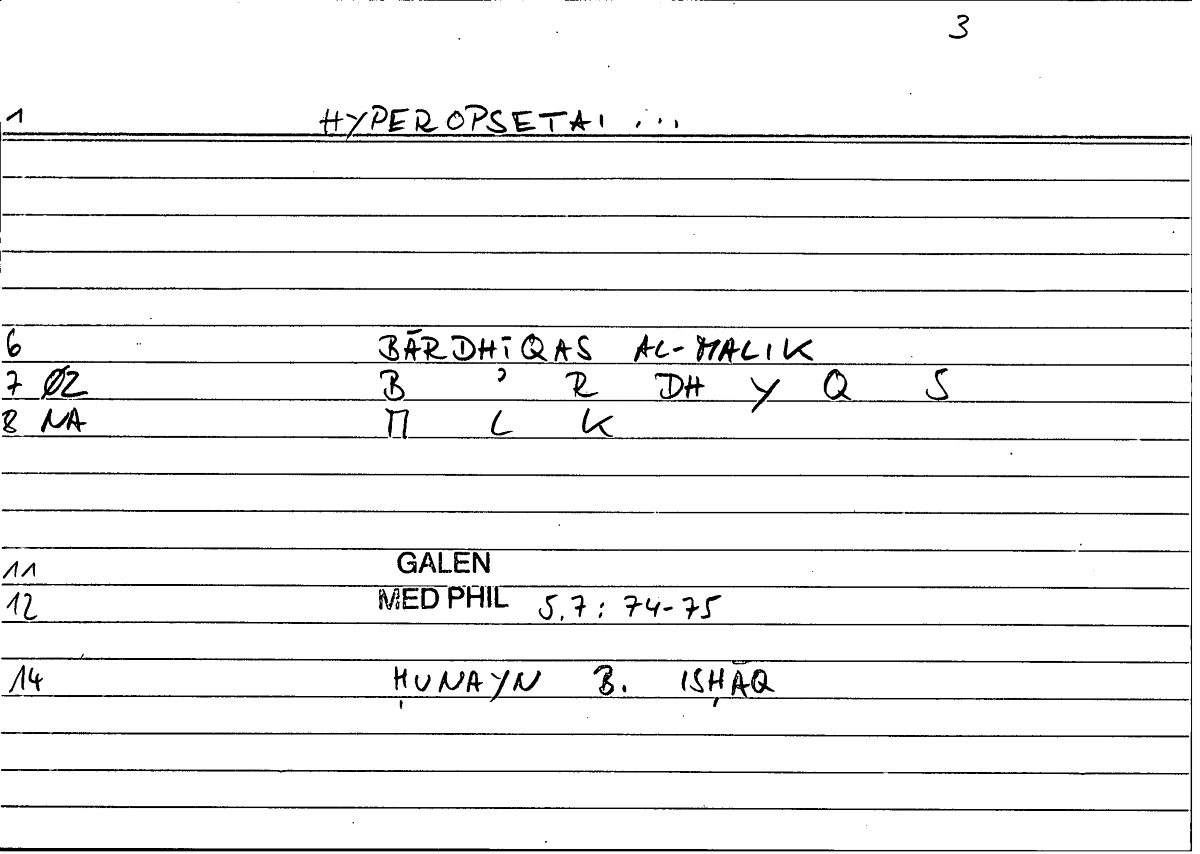 3
1 HYPEROPSETAI ...
6 BĀRDHĪQAS AL-MALIK
7 ØZ B ʾ R DH Y Q S
8 NA M L K
11 GALEN
12 MED PHIL 5.7: 74-75
14 ḤUNAYN B. ISḤĀQ